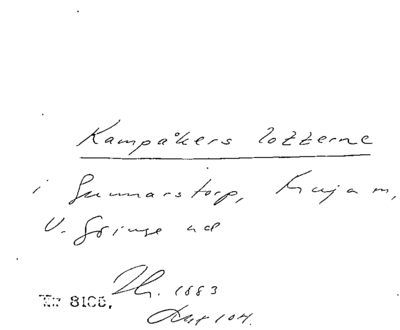 Kampåkers lotterne
i Gunnarstorp, Kruja m,
V. Göinge hd
Th. 1883
8106,
Akt 104.